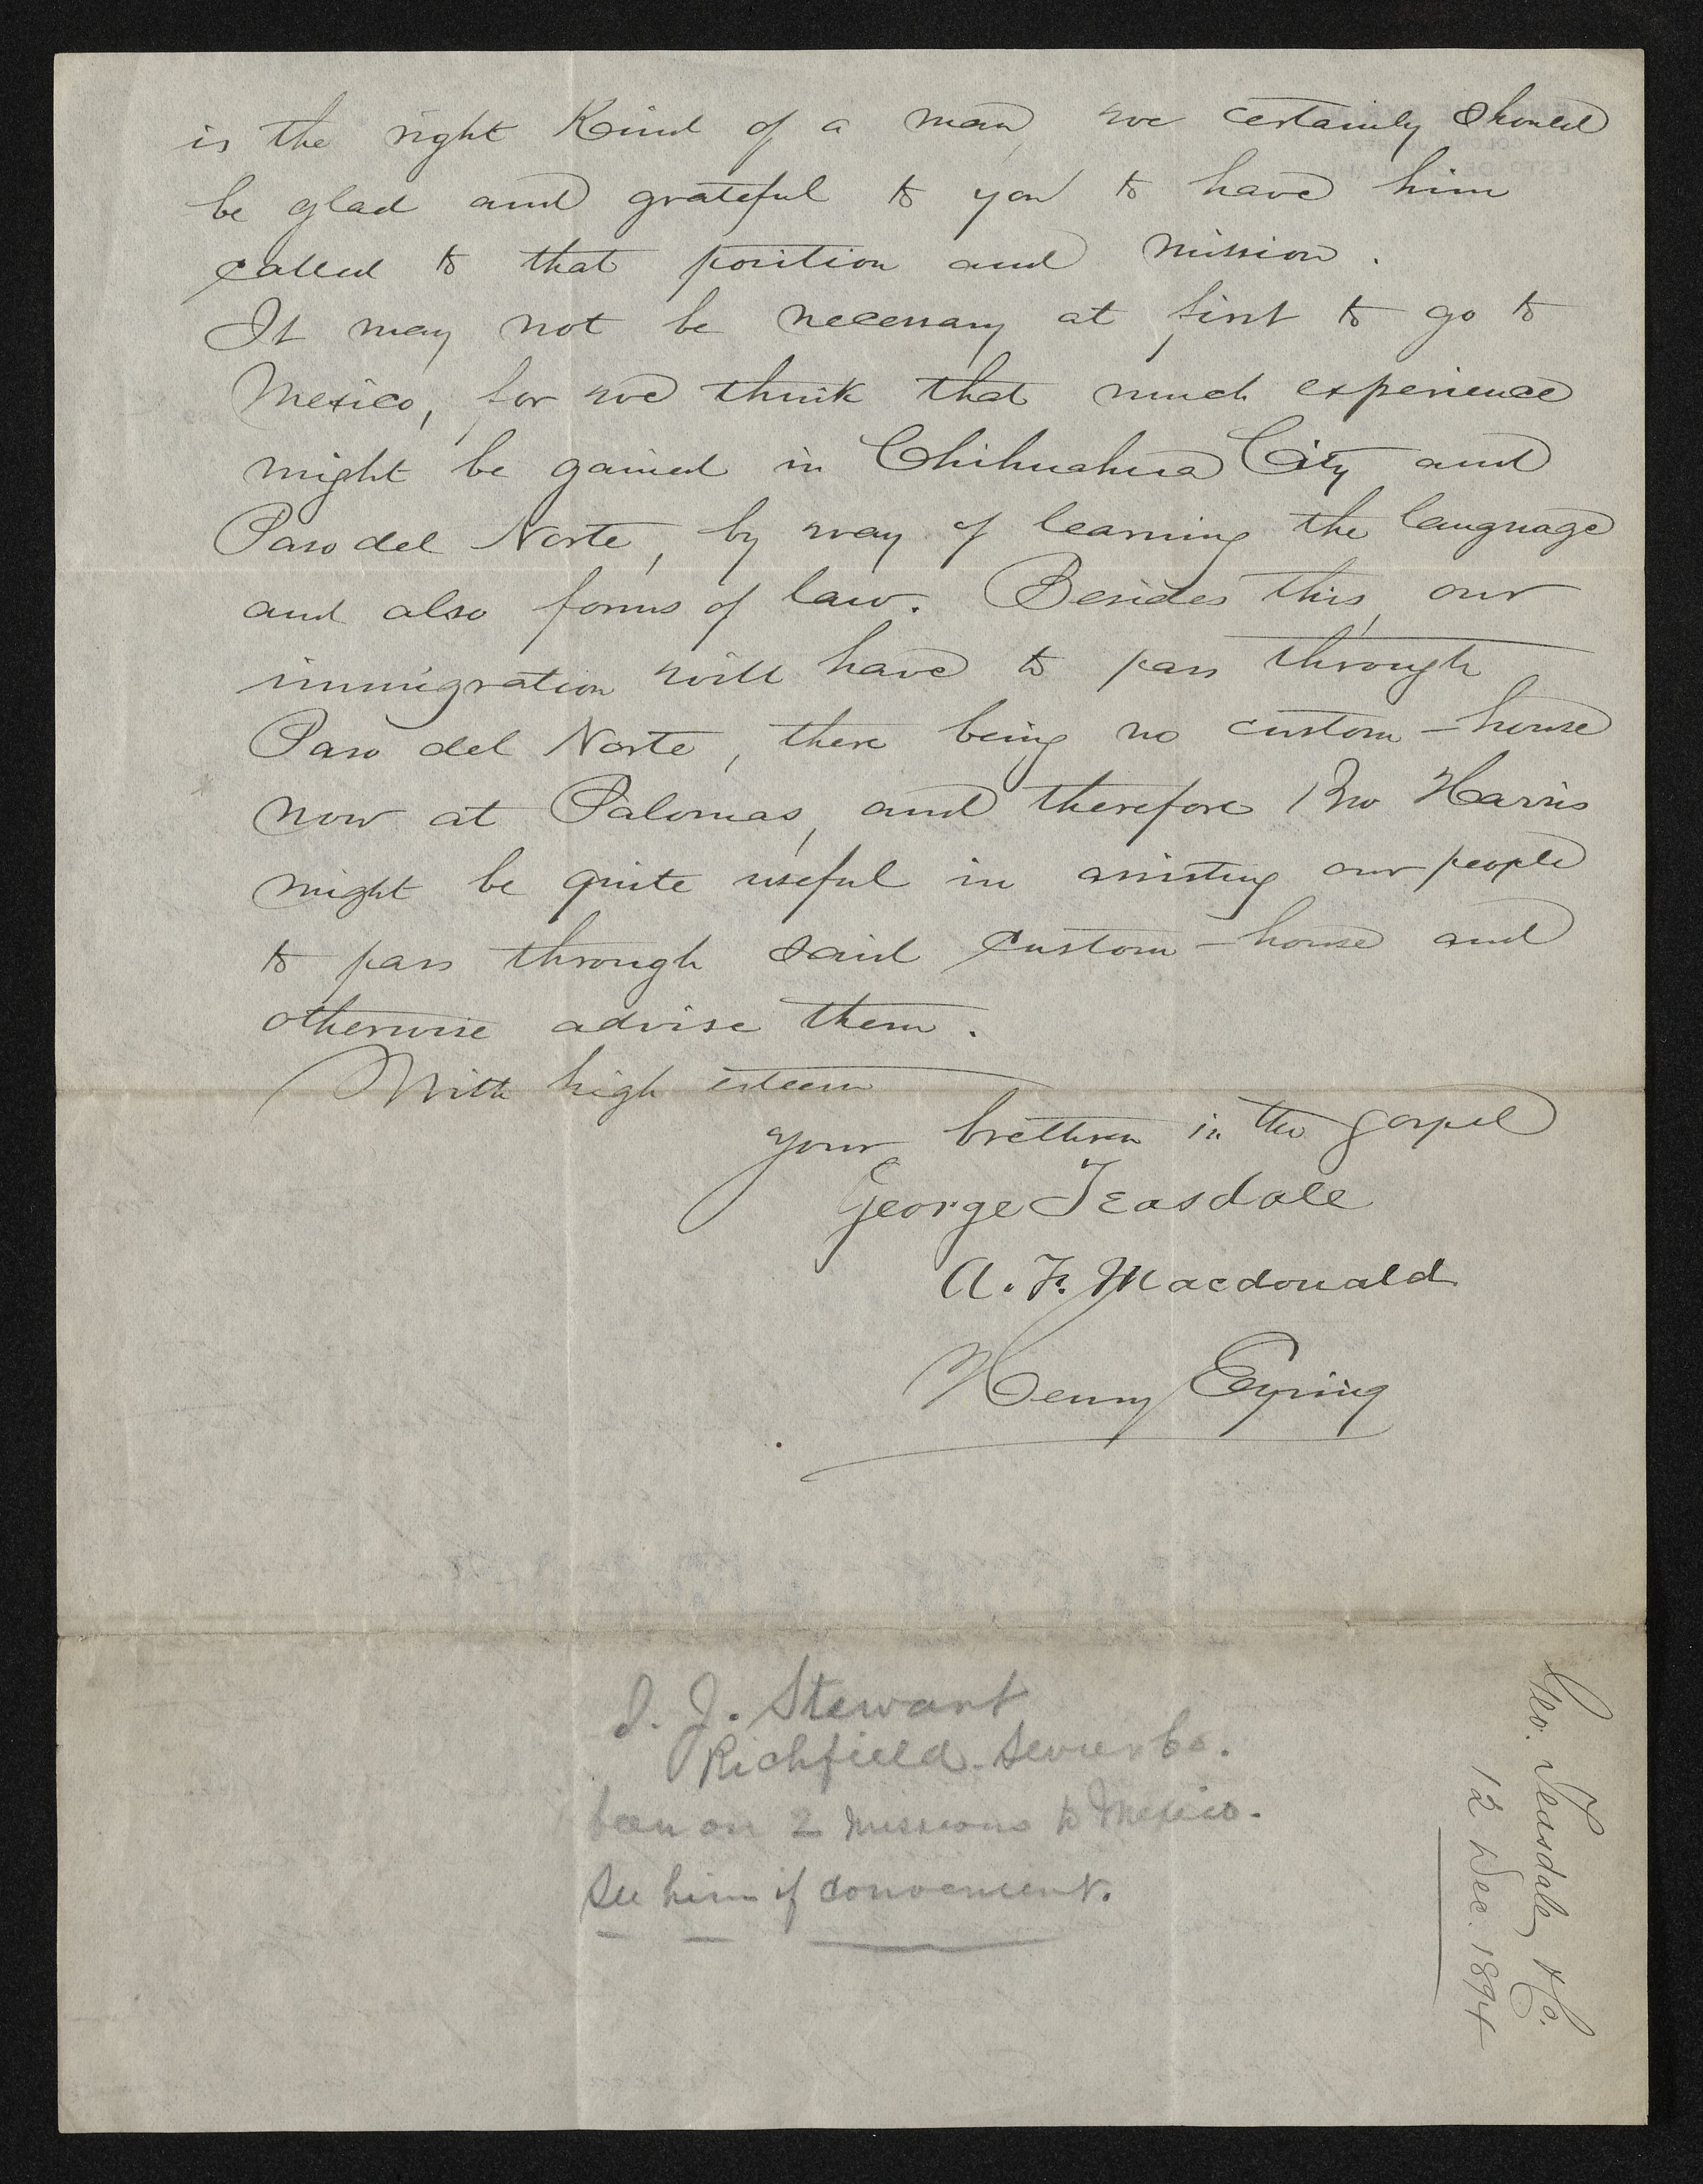 is the right Kind of a man, we certainly should
be glad and grateful to you to have him
called to that position and mission.
It may not be necessary at first to go to
Mexico, for we think that much experience
might be gained in Chihuahua City and
Paso del Norte, by way of learning the language
and also forms of law. Besides this, our
immigration will have to pass through
Paso del Norte, there being no custom-house
now at Palomas, and therefore Bro Harris
might be quite useful in assisting our people
to pass through said custom-house and
otherwise advise them.
With high esteem
your brethren in the gospel
George Teasdale
A. F. Macdonald
Henry Eyring
I. J. Stewart
Richfield. Sevier Co.
been on 2 missions to Mexico.
See him if convenient.
Geo. Teasdale &c.
12 Dec. 1894